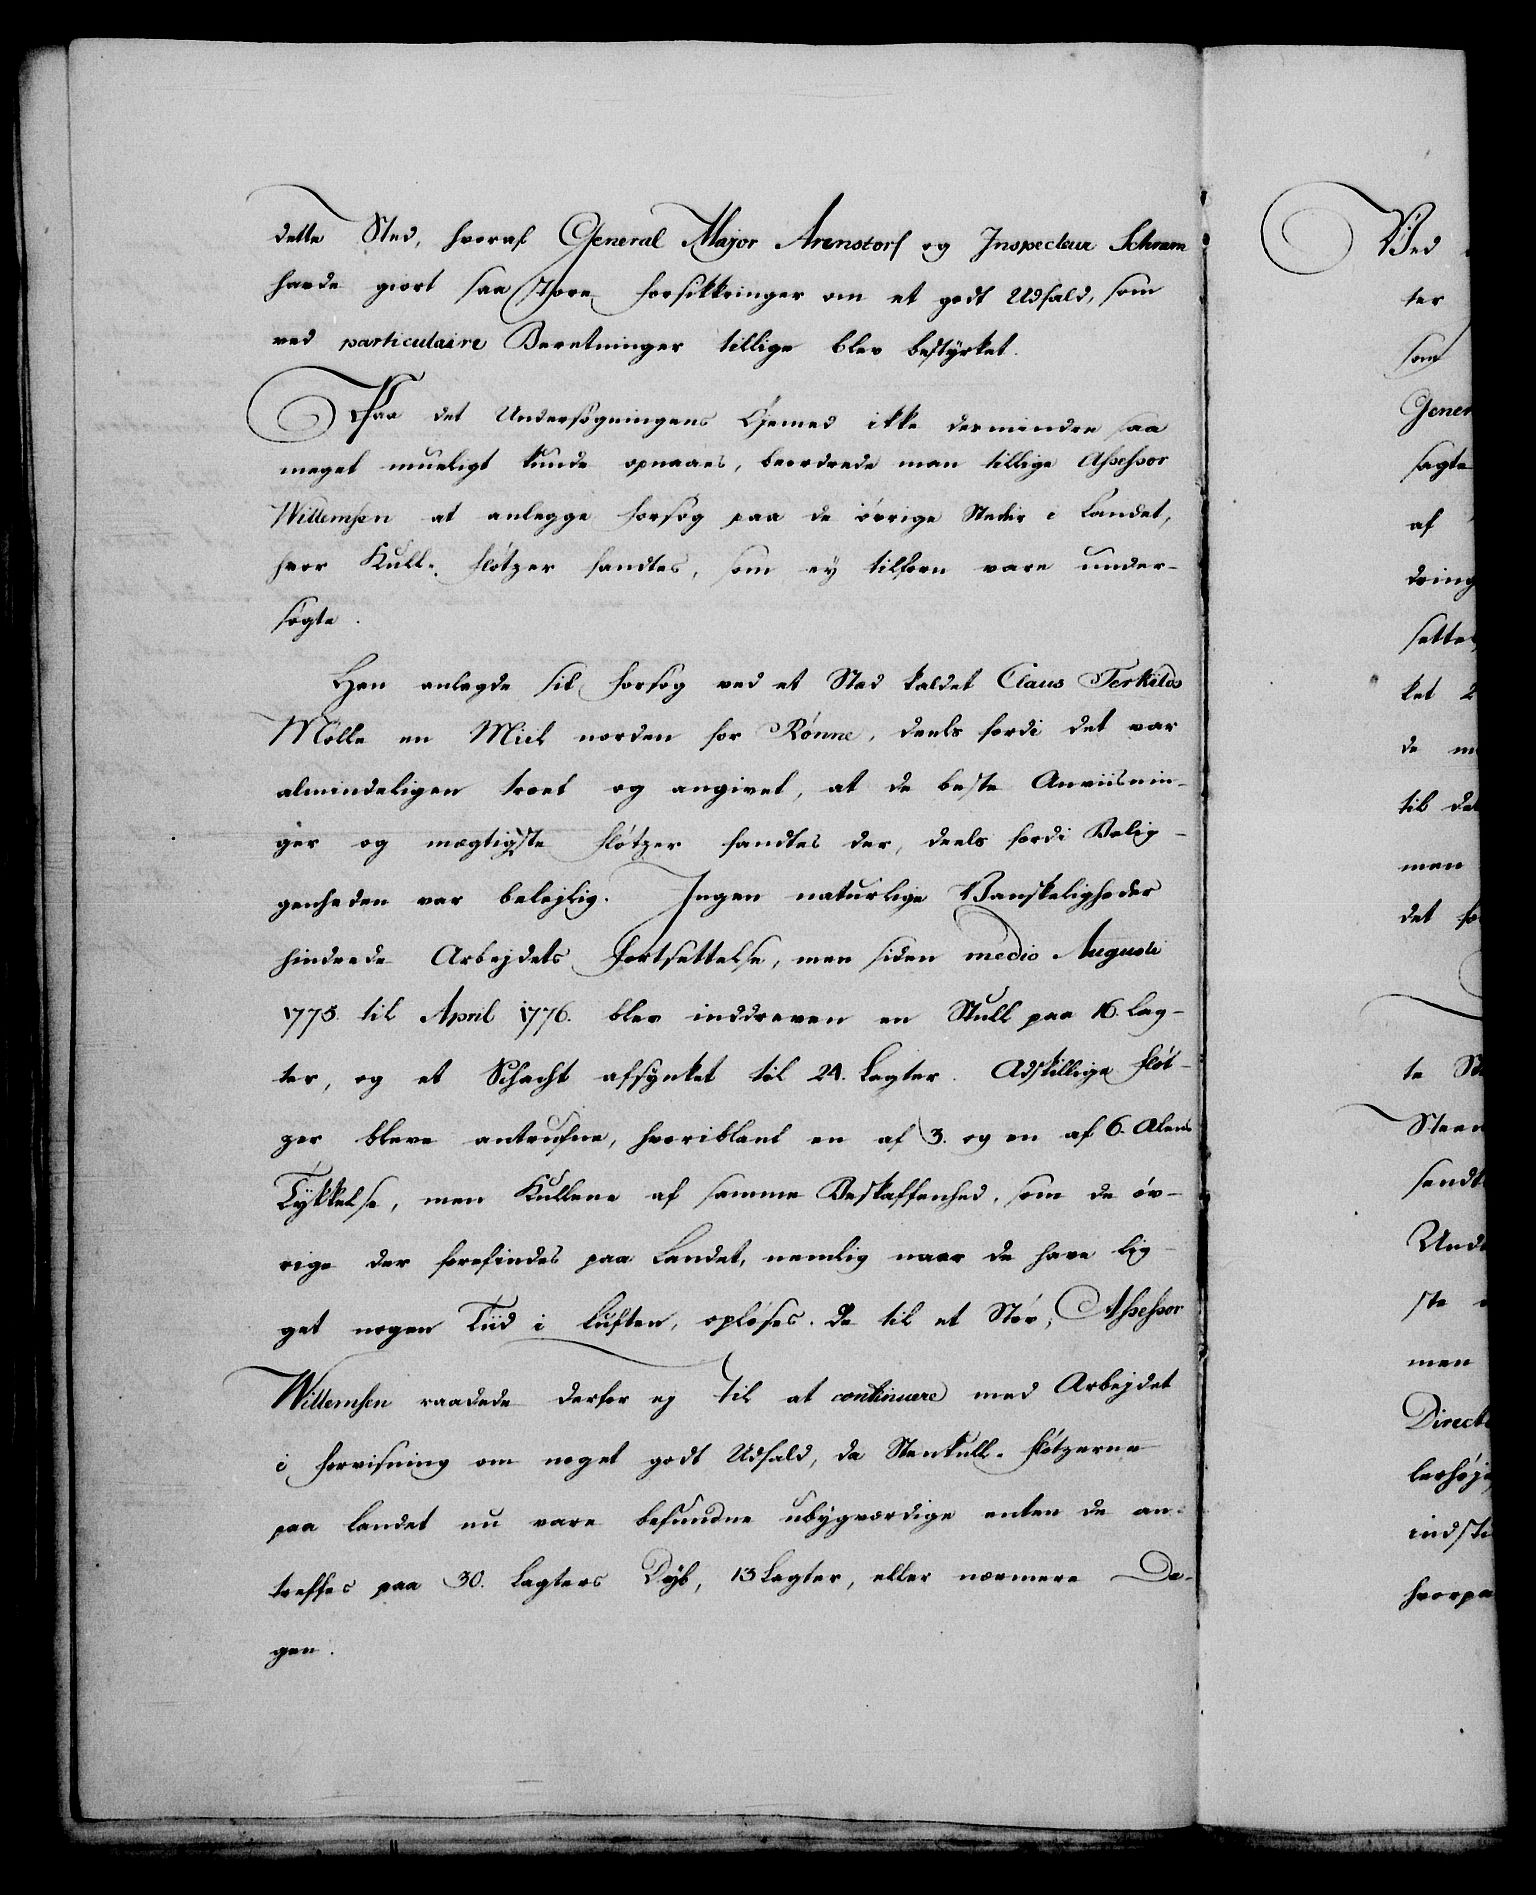 dette Sted, hvoraf General Major Arenstorf og Inspecteur Schram
havde giort saa store Forsikkringer om et godt Udfald, som
ved particulaire Beretninger tillige blev bestyrket.
Paa det Undersøgningens Øjemed ikke desmindre saa
meget mueligt kunde opnaaes, beordrede man tillige Assessor
Willemsen at anlegge Forsøg paa de øvrige Steder i Landet,
hvor Kull-Fløtzer fandtes, som ey tilforn vare under-
søgte.
Han anlagde sit Forsøg ved et Sted kaldet Claus Terkilds
Mølle en Miil norden for Rønne, deels fordi det var
almindeligen troet og angivet, at de beste Anviisnin-
ger og mægtigste Fløtzer fandtes der, deels fordi Belig-
genheden var belejlig. Ingen naturlige Vanskeligheder
hindrede Arbejdets Fortsettelse, men siden medio Augusti
1775. til April 1776. blev inddreven en Stull paa 16. Lag-
ter, og et Schacht afsynket til 24. Lagter. Adskillige Fløt-
zer bleve antrufne, hvoriblant en af 3. og en af 6. Alens
Tykkelse, men Kullene af samme Beskaffenhed, som de øv-
rige der forefindes paa Landet, nemlig naar de have lig-
get nogen Tiid i Luften, opløses de til et Støv; Assessor
Willemsen raadede derfor ej til at continuere med Arbejdet
i Forvisning om noget godt Udfald, da Steenkull-Fløtzerne
paa Landet nu vare befundne ubygværdige enten de an-
treffes paa 30. Lagters Dyb, 13 Lagter, eller nærmere Da-
gen.
Ved
ter
som
Gener
sagte
af
dring
sette
ket 2
de m
til det
men
det fo
te St
Steen
sendt
Unde
ste
men
Direct
lerhøj
indsti
hvorpa